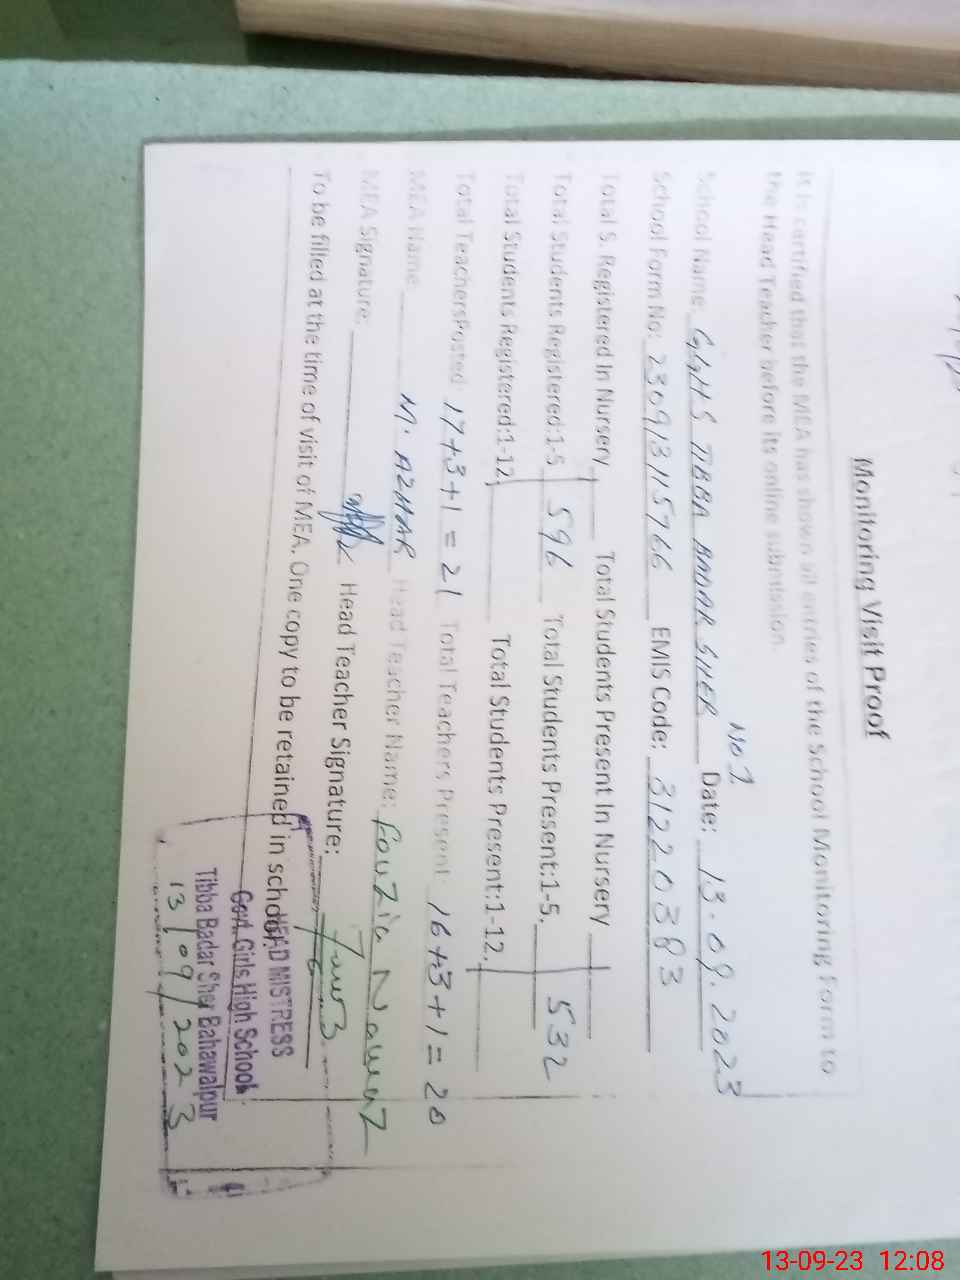 Monitoring Visit Proof
It is certified that the MEA has shown all entries of the School Monitoring Form to
the Head Teacher before its online submission.
No 1
School Name: GGHS TIBBA BADAR SHER Date: 13.09.2023
School Form No: 230913115766 EMIS Code: 31220383
Total S. Registered In Nursery Total Students Present In Nursery
Total Students Registered:1-5 596 Total Students Present:1-5. 532
Total Students Registered:1-12 Total Students Present:1-12.
Total TeachersPosted: 17+3+1 = 21 Total Teachers Present: 16+3+1 = 20
MEA Name: M. AZHAR Head Teacher Name: Fouzia Nawaz
MEA Signature: Head Teacher Signature:
To be filled at the time of visit of MEA. One copy to be retained in school.
HEAD MISTRESS
Govt. Girls High School
Tibba Badar Sher Bahawalpur
13/09/2023
13-09-23 12:08